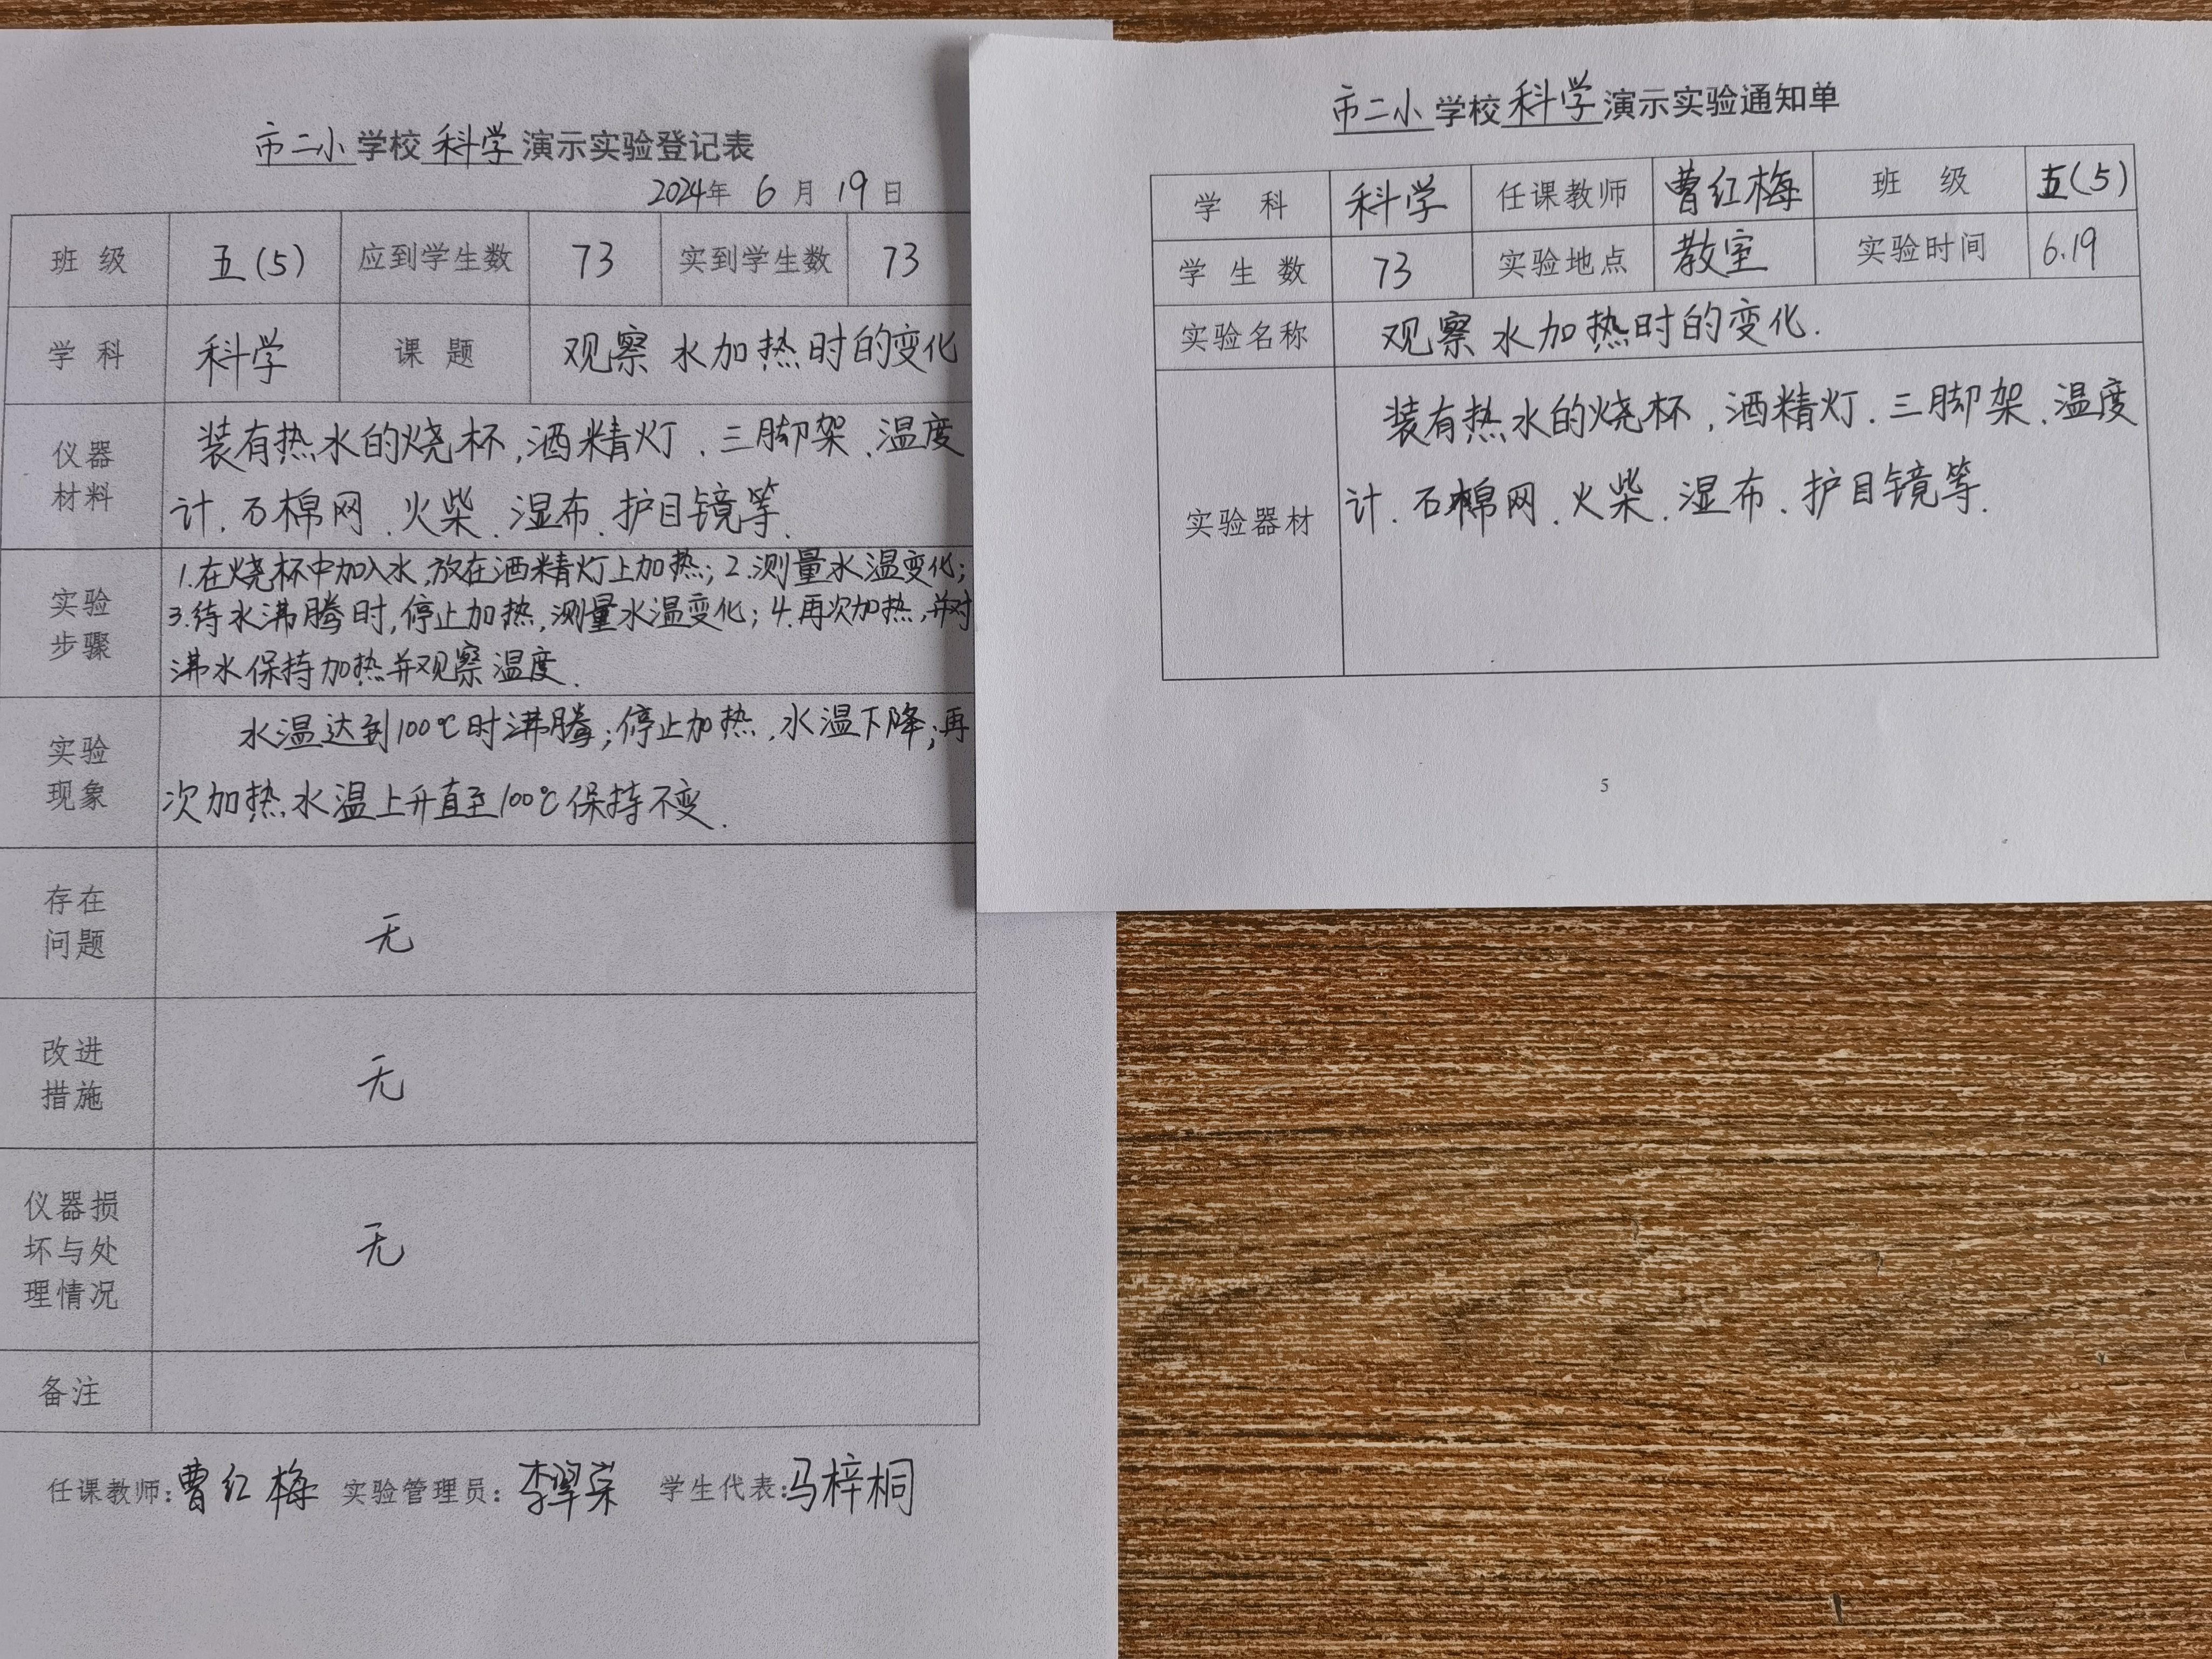 市二小学校科学演示实验登记表
2024年 6 月 19 日
班 级 五(5) 应到学生数 73 实到学生数 73
学 科 科学 课 题 观察水加热时的变化
仪器
材料
装有热水的烧杯,酒精灯、三脚架、温度
计、石棉网、火柴、湿布、护目镜等.
实验
步骤
1.在烧杯中加入水,放在酒精灯上加热;2.测量水温变化;
3.待水沸腾时,停止加热,测量水温变化;4.再次加热,并对
沸水保持加热并观察温度.
实验
现象
水温达到100℃时沸腾;停止加热,水温下降;再
次加热,水温上升直至100℃保持不变.
存在
问题
无
改进
措施
无
仪器损
坏与处
理情况
无
备注
任课教师:曹红梅 实验管理员:李翠荣 学生代表:马梓桐
市二小学校科学演示实验通知单
学 科 科学 任课教师 曹红梅 班 级 五(5)
学 生 数 73 实验地点 教室 实验时间 6.19
实验名称 观察水加热时的变化.
实验器材
装有热水的烧杯,酒精灯、三脚架、温度
计、石棉网、火柴、湿布、护目镜等.
5